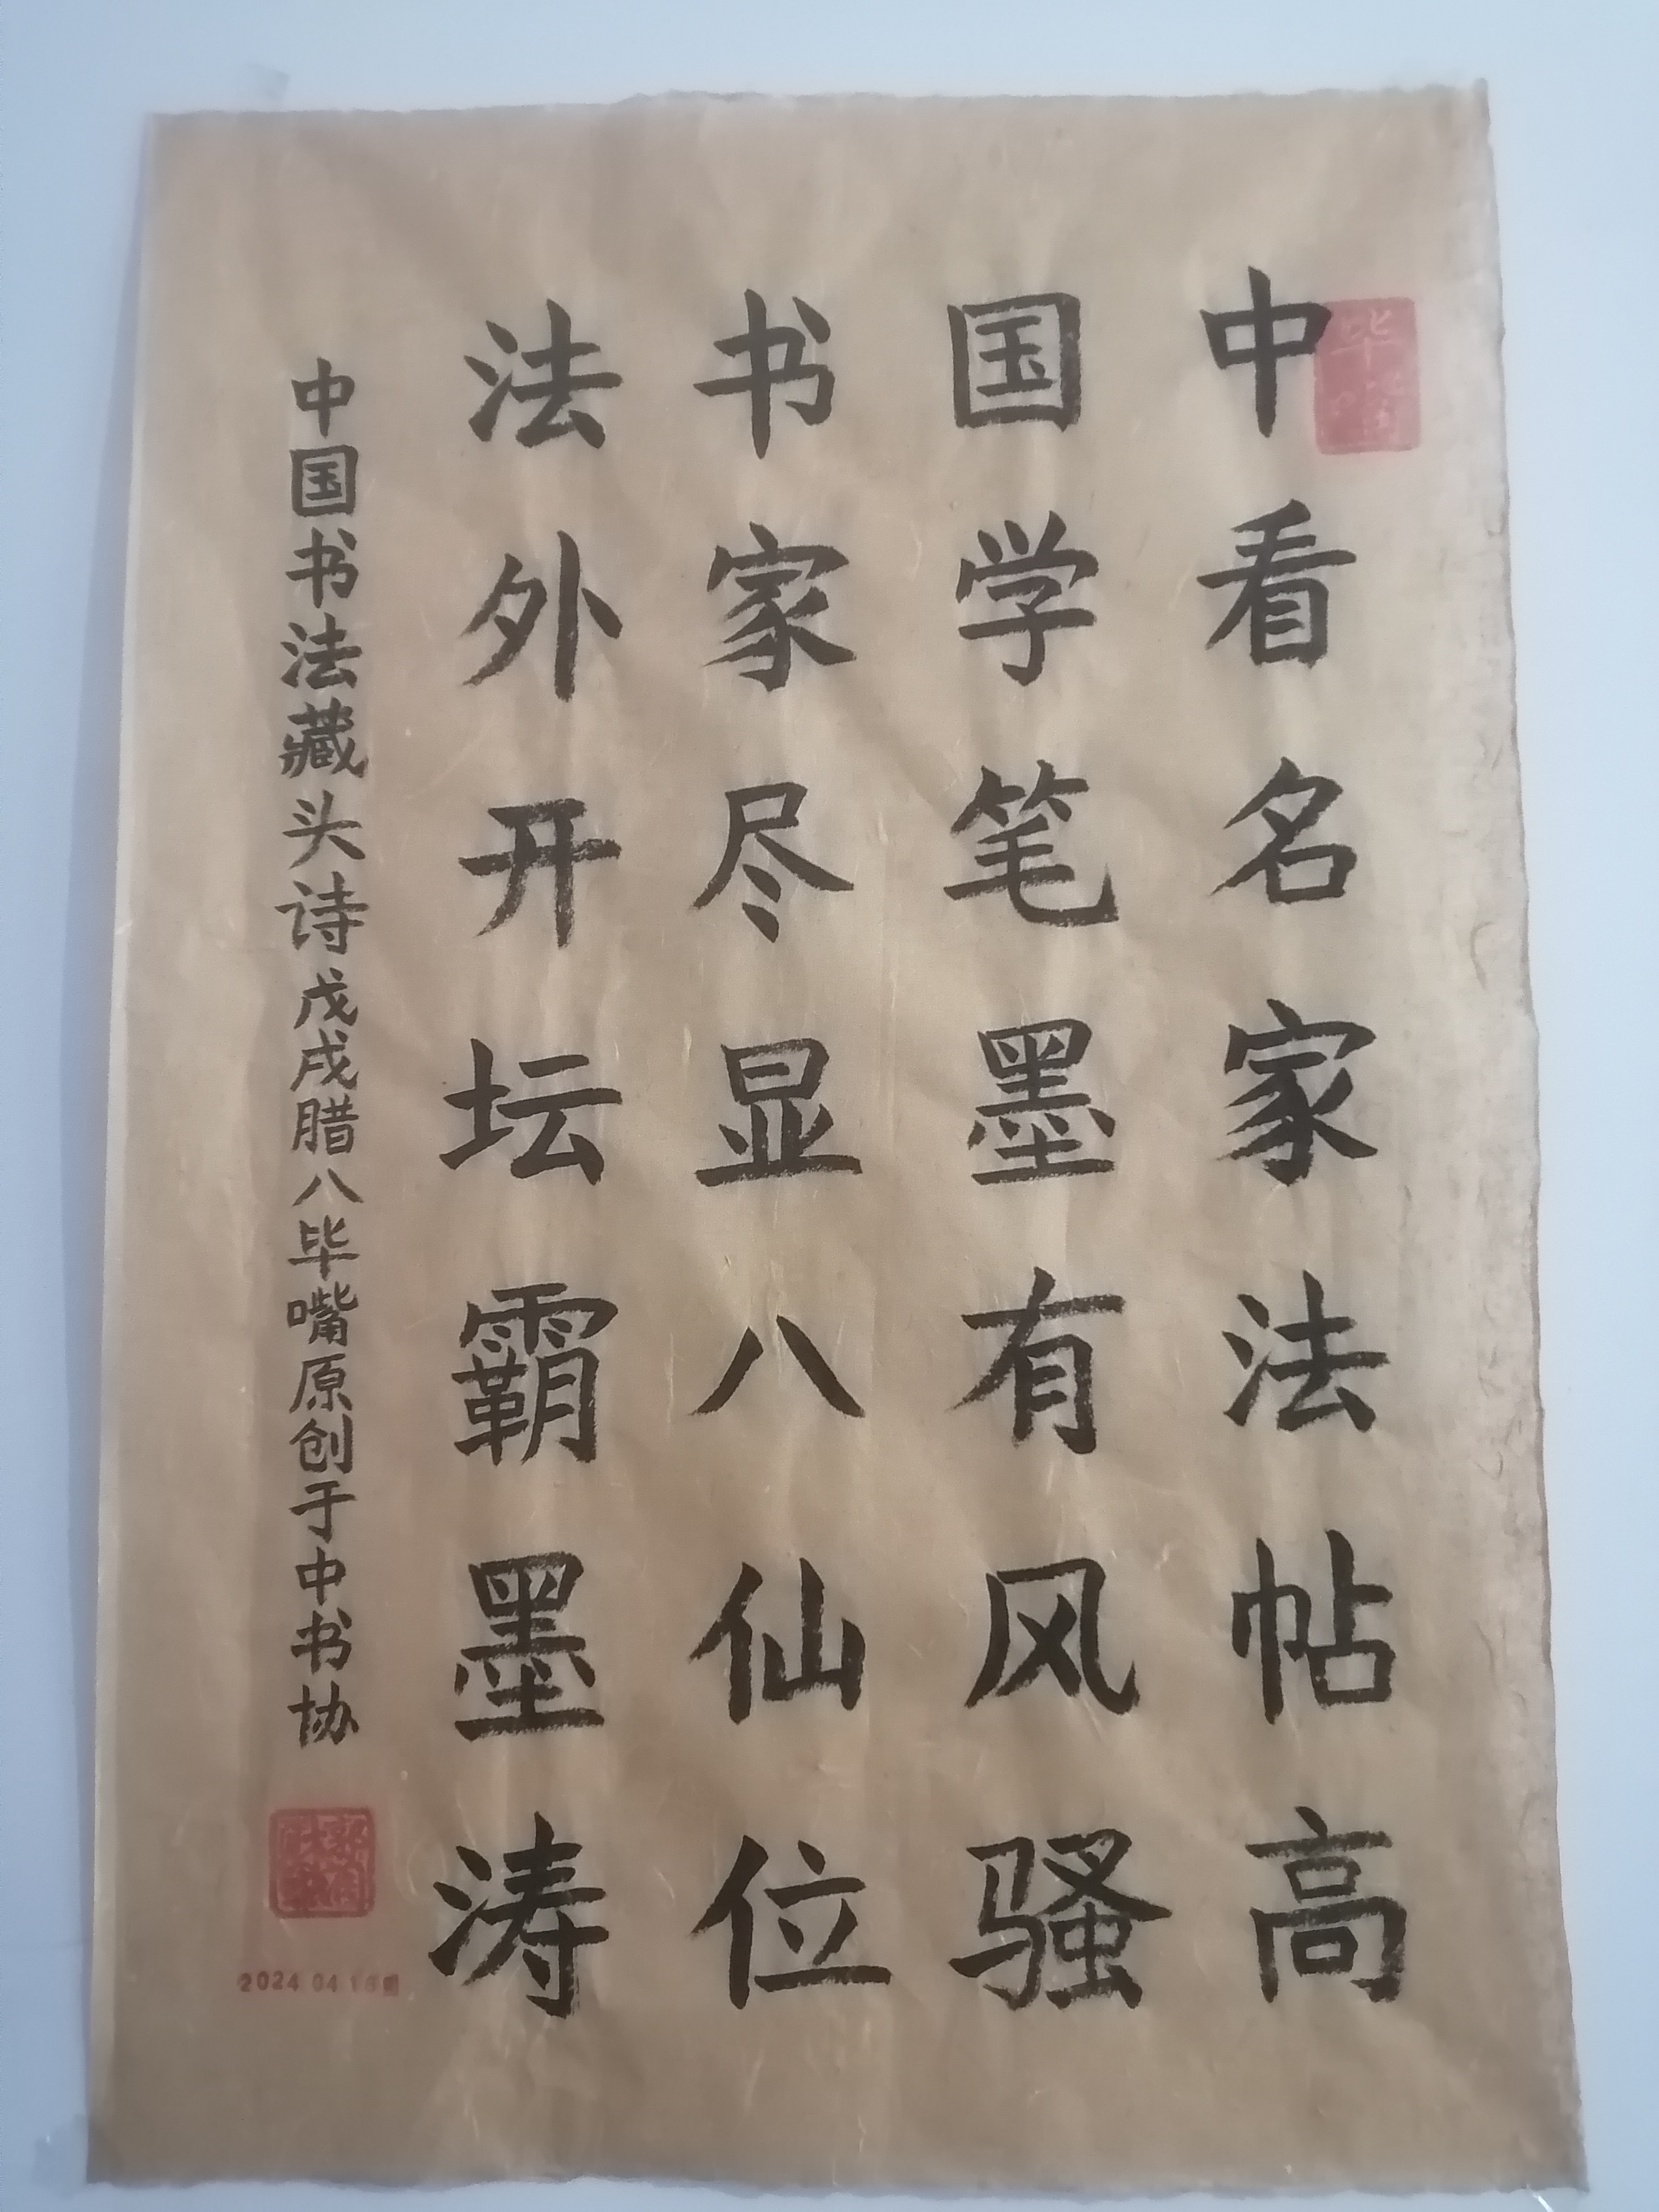 毕嘴
中看名家法帖高
国学笔墨有风骚
书家尽显八仙位
法外开坛霸墨涛
中国书法藏头诗戊戌腊八毕嘴原创于中书协
2024 04 1